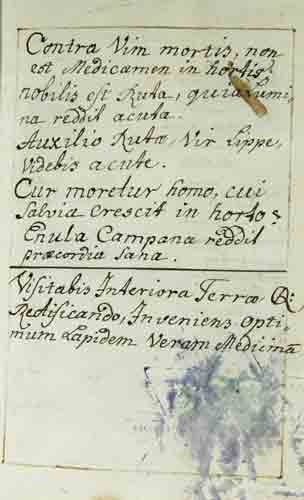 Contra Vim mortis, non
est Medicamen in hortis,
nobilis est Ruta, quia lumi,
na reddit acuta.
Auxilio Rutæ, Vir lippe,
videbis acute.
Cur moretur homo, cui
Salvia crescit in horto?
Enula Campana reddit
præcordia sana.
Visitabis Interiora Terræ
Rectificando, Inveniens Opti-
mum Lapidem Veram Medicinã